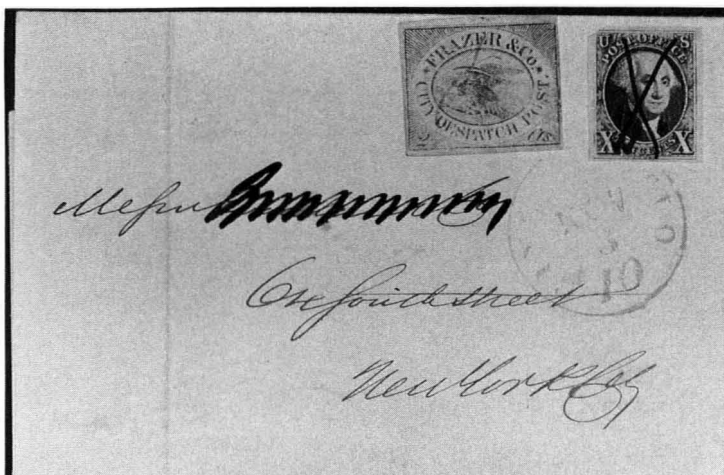 FRAZER & Co.
CITY DESPATCH POST.
U S
POST OFFICE
X X
NOV
10
Messrs
South Street
New York City